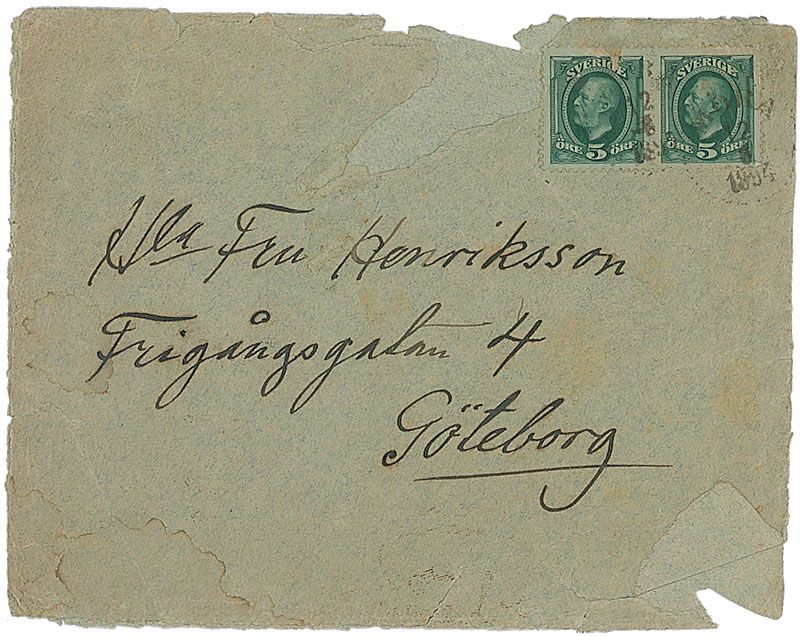 SVERIGE SVERIGE
ÖRE 5 ÖRE ÖRE 5 ÖRE
Hla Fru Henriksson
Frigångsgatan 4
Göteborg